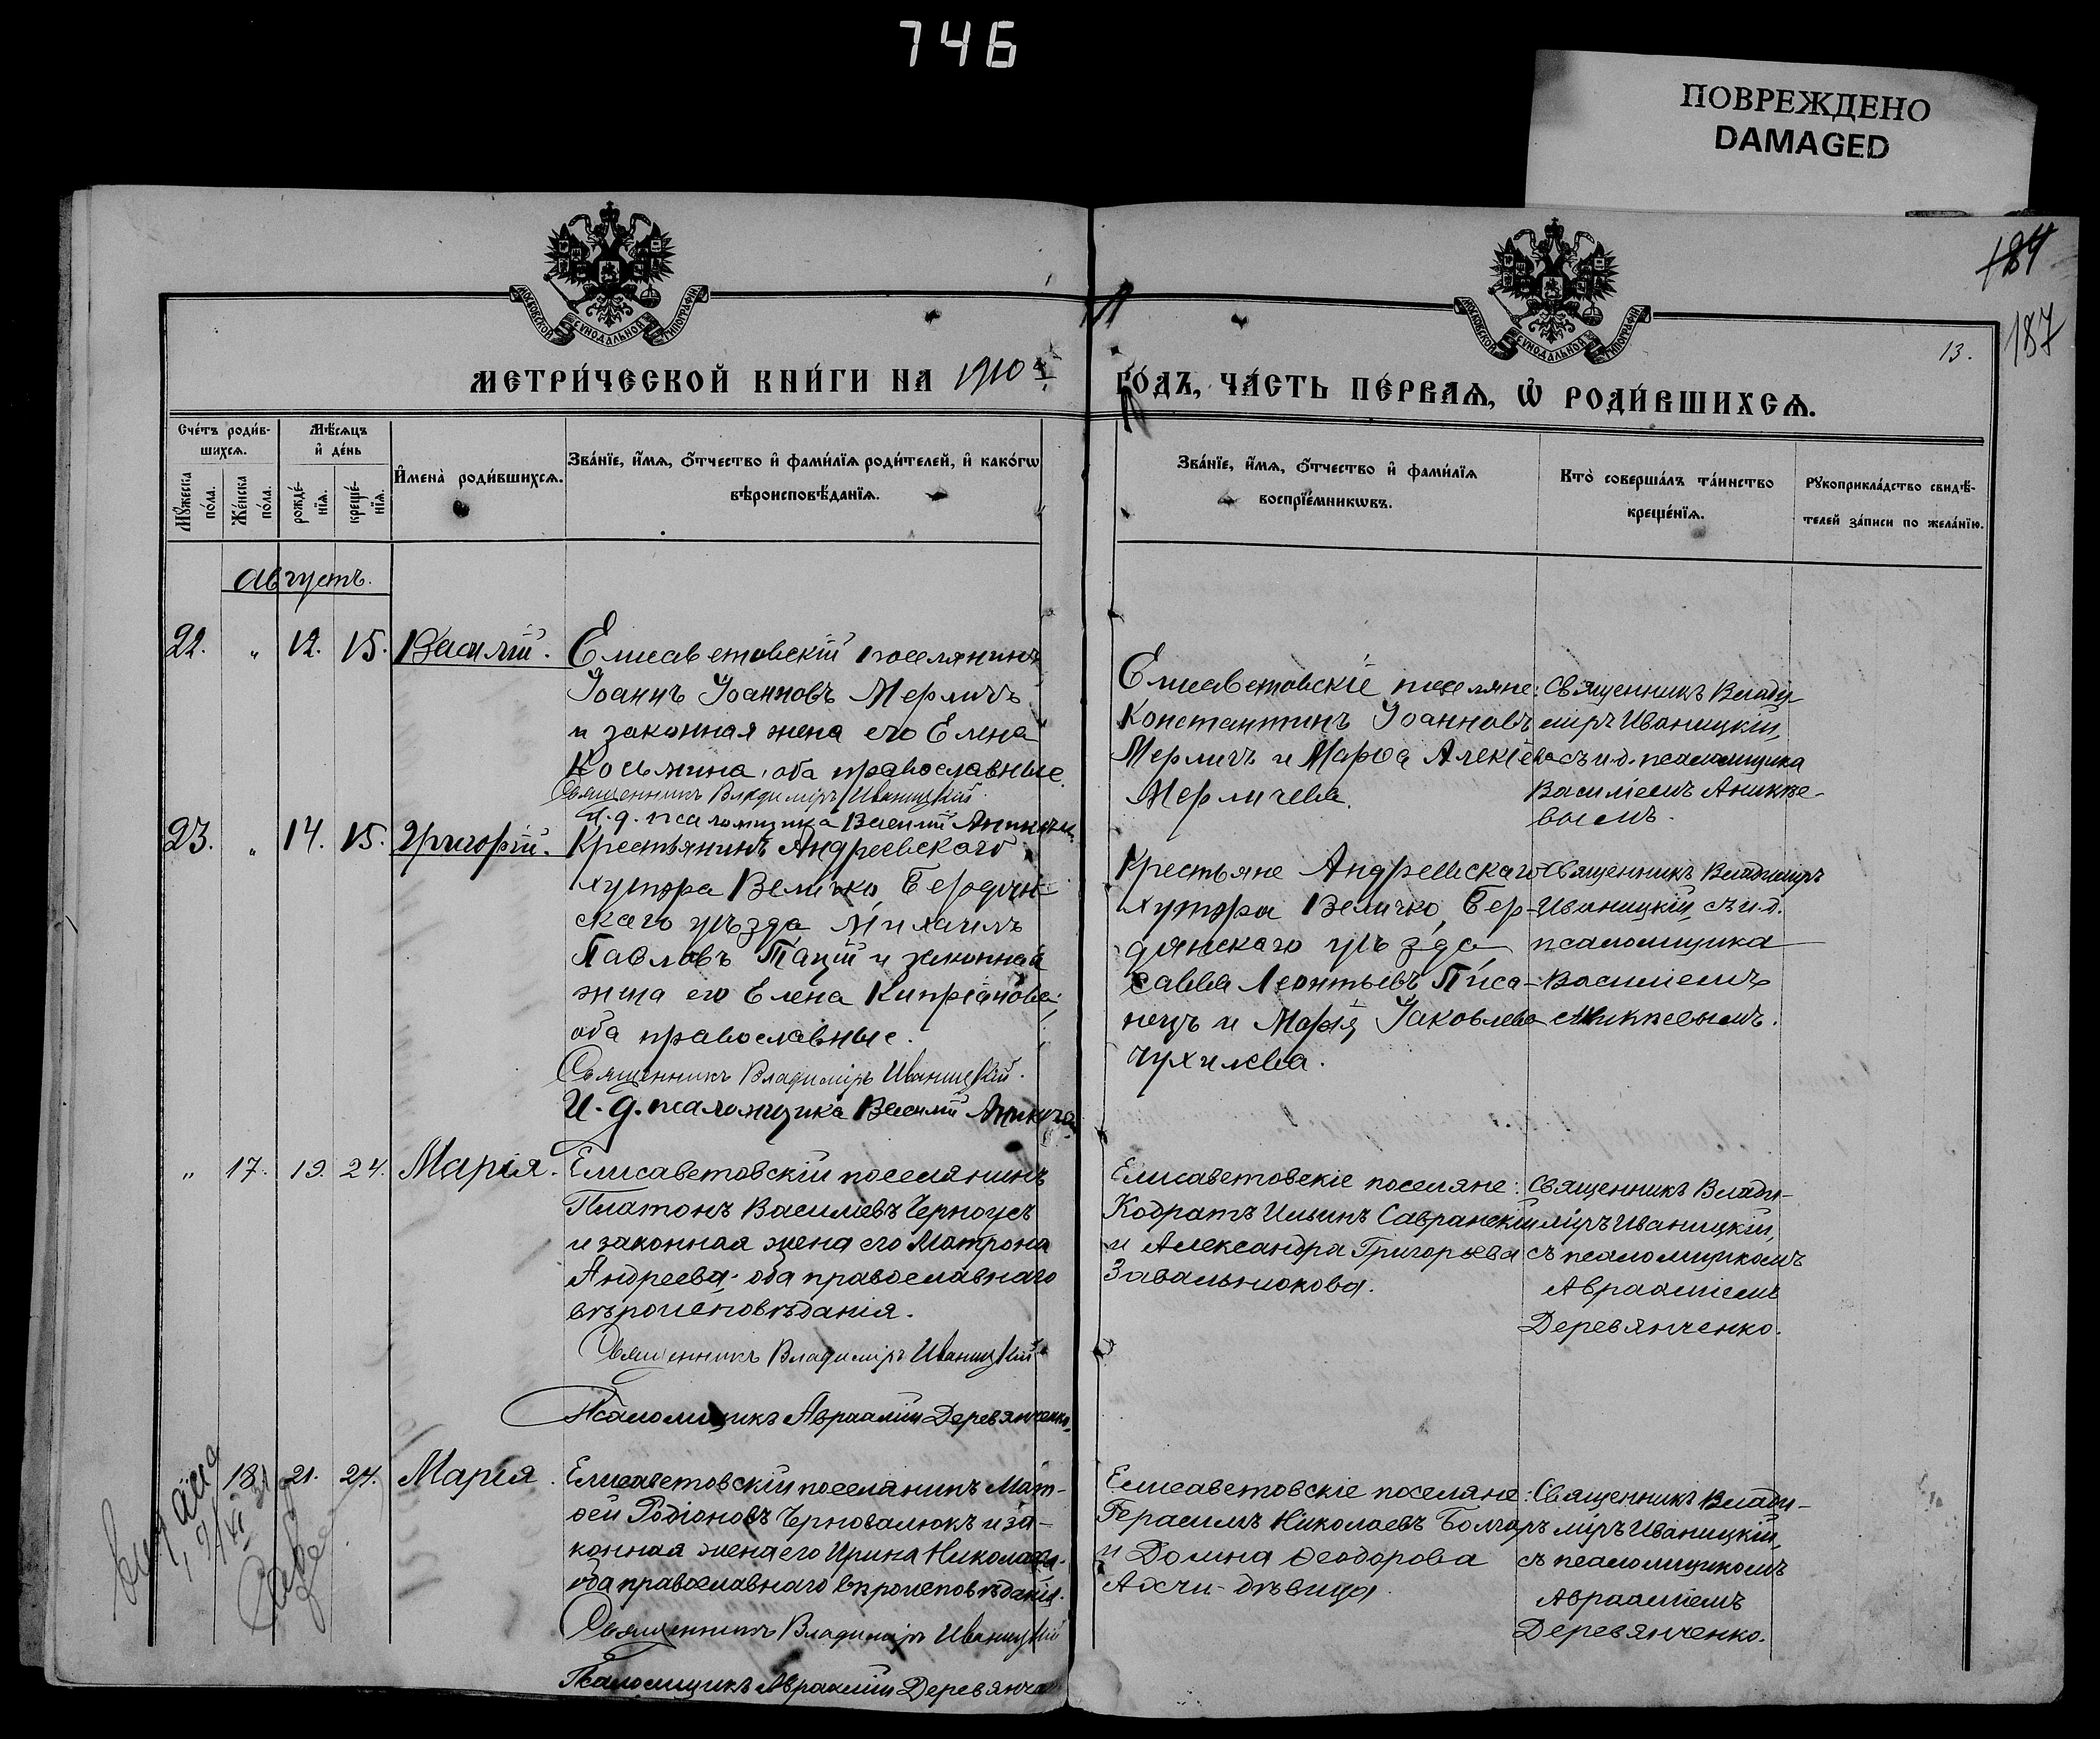 746
ПОВРЕЖДЕНО
DAMAGED
184
187
13.
МОСКОВСКОЙ СѴНОДАЛЬНОЙ ТИПОГРАФІИ
МОСКОВСКОЙ СѴНОДАЛЬНОЙ ТИПОГРАФІИ
МЕТРИ́ЧЕСКОЙ КНИ́ГИ НА 1910й
ГО́ДЪ, ЧА́СТЬ ПЕ́РВАѦ, Ѡ РОДИ́ВШИХСѦ.
Сче́тъ роди́в-
шихсѧ.
Мꙋ́жеска по́ла.
Же́нска по́ла.
Мѣ́сѧцъ
и҆ де́нь
рожде́-
нїѧ.
креще́-
нїѧ.
И҆мена̀ роди́вшихсѧ.
Зва́нїе, и҆́мѧ, ѻ҆́тчество и҆ фами́лїѧ роди́телей, и҆ како́гѡ
вѣроисповѣ́данїѧ.
Зва́нїе, и҆́мѧ, ѻ҆́тчество и҆ фами́лїѧ
воспрїе́мникѡвъ.
Кто̀ соверша́лъ та́инство
креще́нїѧ.
Рꙋкоприкла́дство свидѣ́-
телей за́писи по жела́нїю.
Августъ.
22. " 12. 15. Василій.
Елисаветовскій поселянинъ
Іоаннъ Іоанновъ Мерличъ
и законная жена его Елена
Косьмина, оба православные.
Священникъ Владиміръ Иваницкій
И. д. псаломщика Василій Аникѣевъ
Елисаветовскіе поселяне:
Константинъ Іоанновъ
Мерличъ и Марѳа
Мерличева.
Священникъ Влади-
міръ Иваницкій,
съ и. д. псаломщика
Василіемъ Аникѣе-
вымъ.
23. " 14. 15. Григорій.
Крестьянинъ Андреевскаго
хутора Величко, Бердян-
скаго уѣзда Михаилъ
Павловъ и законная
жена его Елена Кипріанова;
оба православные.
Священникъ Владиміръ Иваницкій.
И. д. псаломщика Василій Аникѣевъ
Крестьяне Андреевскаго
хутора Величко, Бер-
дянскаго уѣзда
Савва Леонтьевъ Писа-
нецъ и Марія Іаковлева
Чухилева.
Священникъ Владиміръ
Иваницкій, съ и. д.
псаломщика
Василіемъ
Аникѣевымъ.
" 17. 19. 24. Марія.
Елисаветовскій поселянинъ
Платонъ Васильевъ Черноусъ
и законная жена его Матрона
Андреева; оба православнаго
вѣроисповѣданія.
Священникъ Владиміръ Иваницкій
Псаломщикъ Авраамій Деревянченко.
Елисаветовскіе поселяне:
Кодратъ Ильинъ Савранскій
и Александра Григорьева
Завальнюкова.
Священникъ Влади-
міръ Иваницкій,
съ псаломщикомъ
Аврааміемъ
Деревянченко.
18. 21. 24. Марія.
Елисаветовскій поселянинъ Мат-
ѳей Родіоновъ Черновалюкъ и за-
конная жена его Ирина Николаева
оба православнаго вѣроисповѣданія.
Священникъ Владиміръ Иваницкій
Псаломщикъ Авраамій Деревянченко
Елисаветовскіе поселяне:
Герасимъ Николаевъ Болгаръ
и Домна Ѳеодорова
Ахчи - дѣвица.
Священникъ Влади-
міръ Иваницкій,
съ псаломщикомъ
Аврааміемъ
Деревянченко.